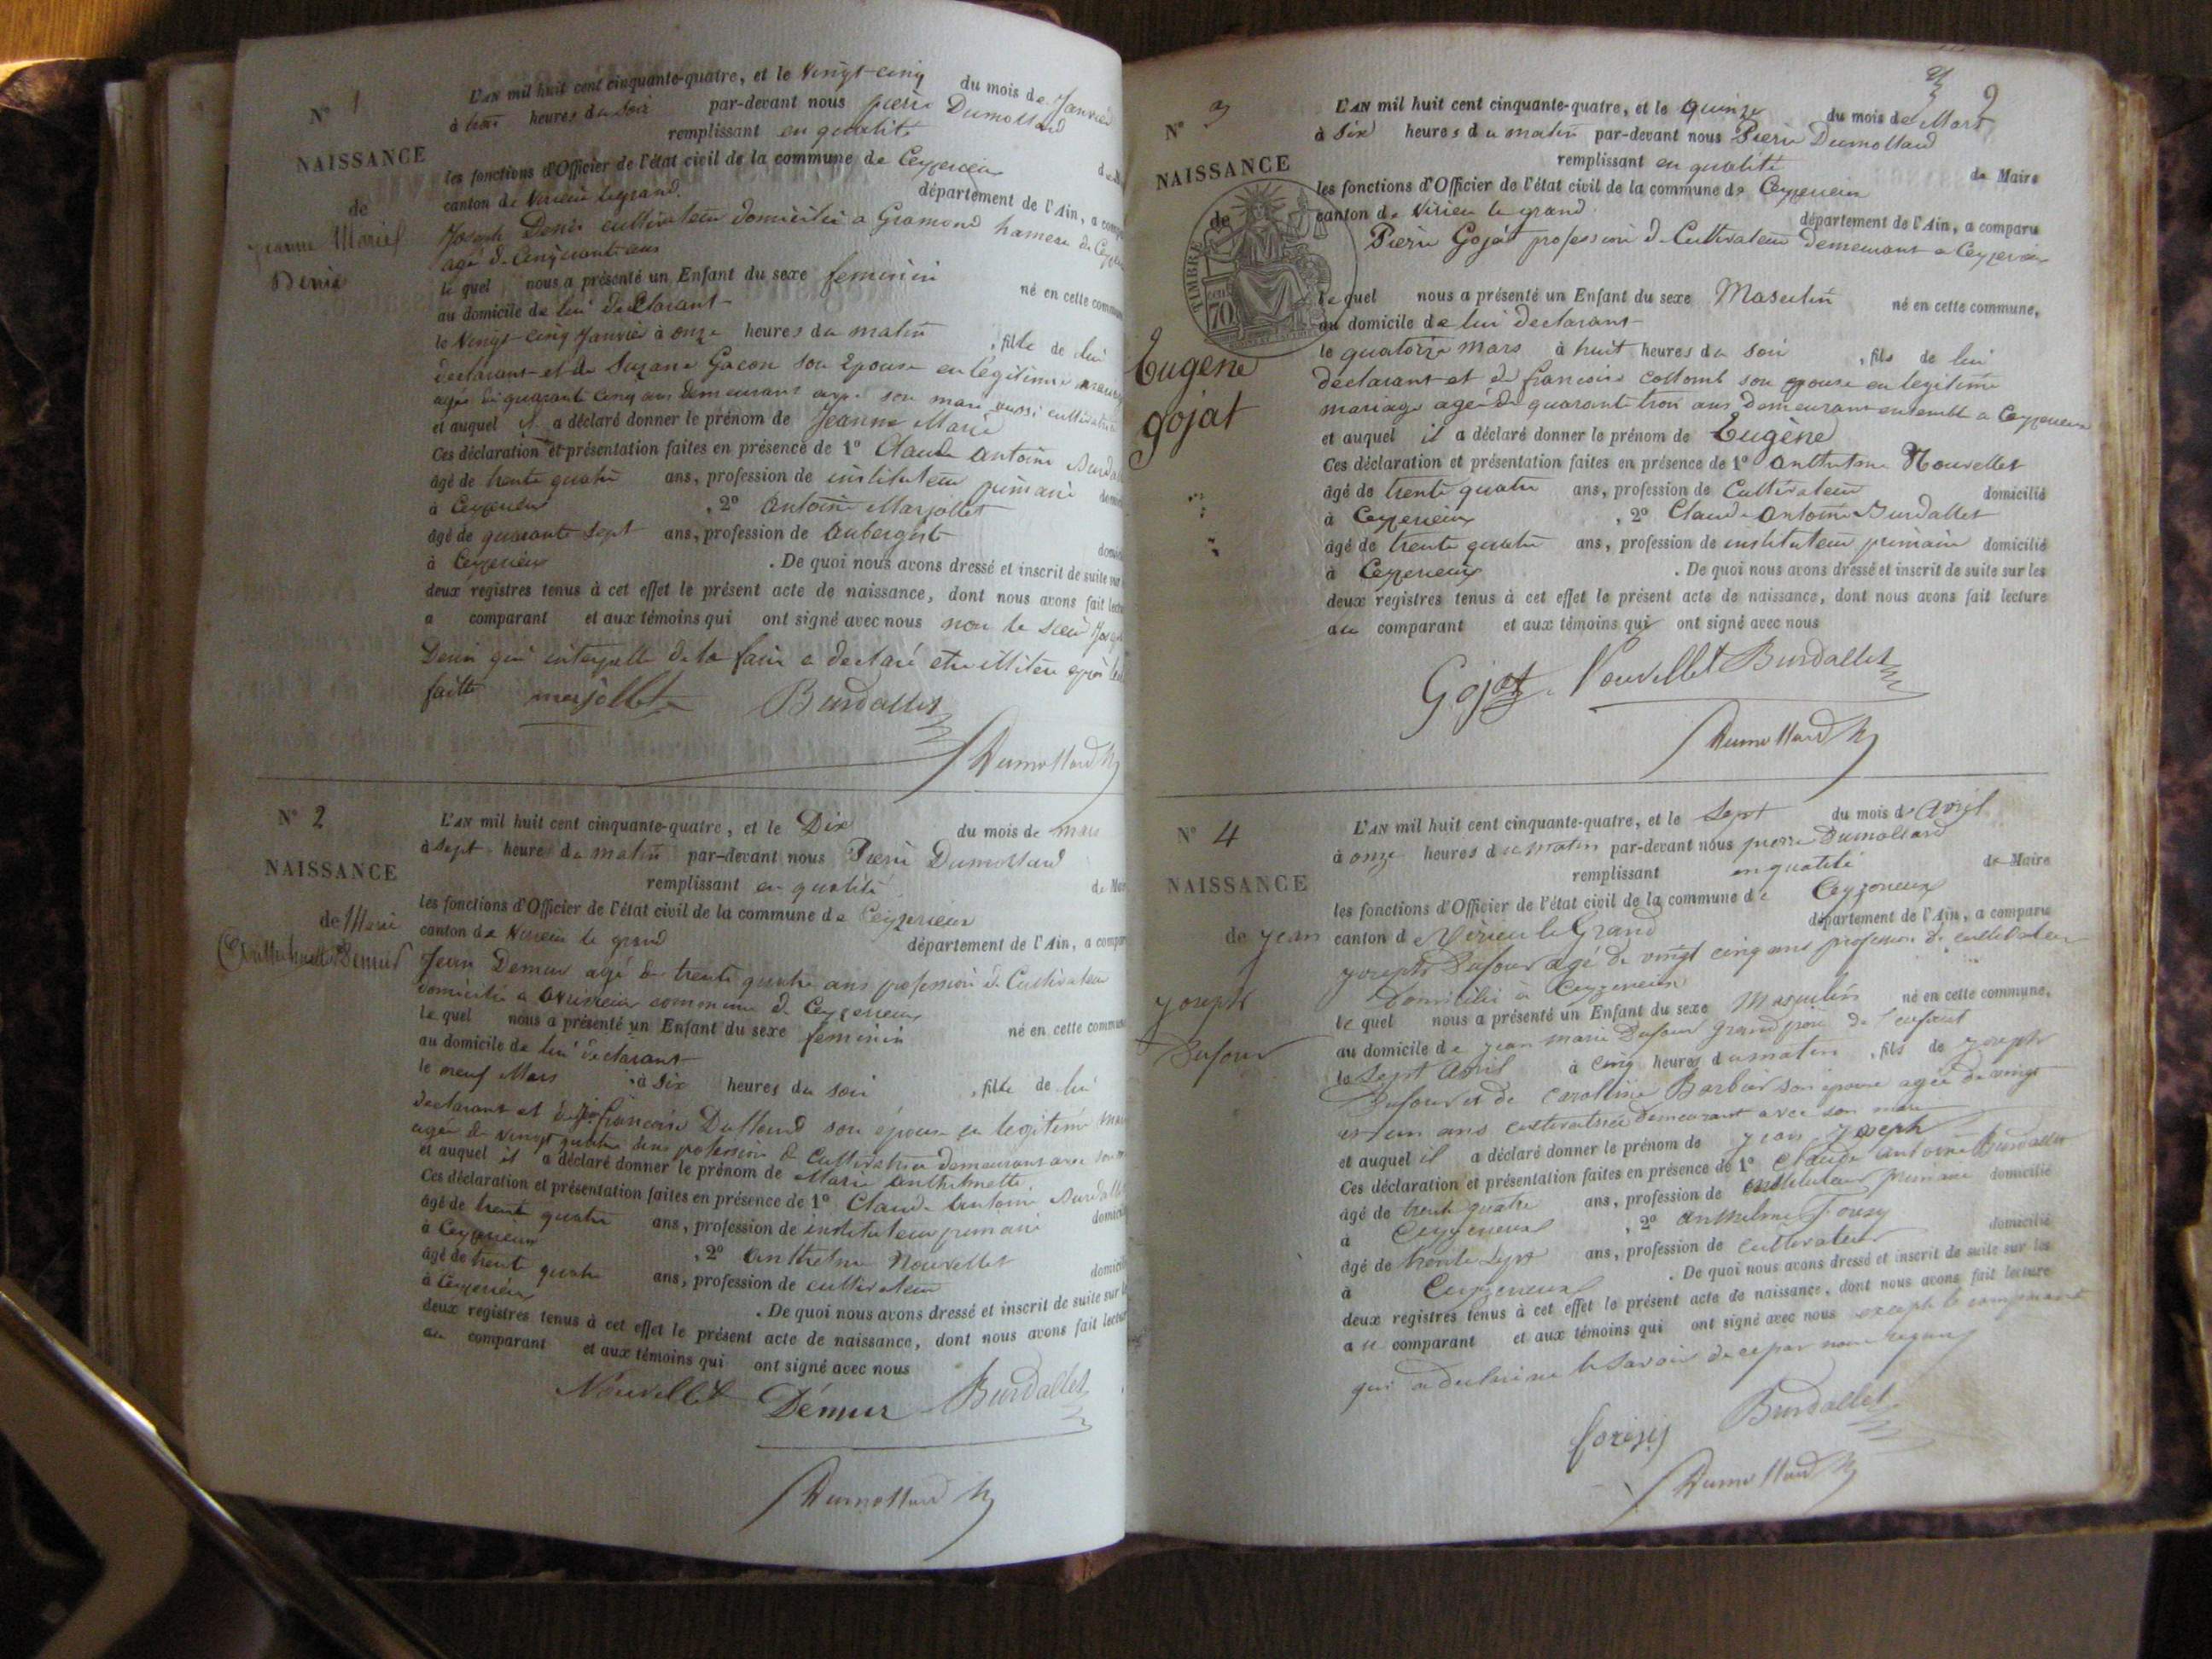 N° 1
NAISSANCE
de
Jeanne Marie
Denis
L'AN mil huit cent cinquante-quatre, et le Vingt-cinq du mois de Janvier
à heures du soir par-devant nous pierre Dumollard
remplissant en qualité
les fonctions d'Officier de l'état civil de la commune de Ceyzerieux
canton de Virieu le grand. département de l'Ain, a
Joseph Denis cultivateur domicilié a Gramond hameau de
agé de Cinquante ans
le quel nous a présenté un Enfant du sexe feminin né en cette
au domicile de lui declarant
le Vingt-cinq Janvier à onze heures du matin , fille de lui
declarant et de Suzane Gacon son Epouse en légitime
agée de quarante cinq ans demeurant avec son mari aussi
et auquel il a déclaré donner le prénom de Jeanne Marie
Ces déclaration et présentation faites en présence de 1° Claude antoine
âgé de trente quatre ans, profession de instituteur primaire
à Ceyzerieux , 2° antoine Marjollet
âgé de quarante sept ans, profession de aubergiste
à Ceyzerieux . De quoi nous avons dressé et inscrit de suite
deux registres tenus à cet effet le présent acte de naissance, dont nous avons fait
a comparant et aux témoins qui ont signé avec nous non le sieur
Denis qui interpellé de le faire a declaré etre
faite marjollet Burdallet
Dumollard
N° 2
NAISSANCE
de Marie
Anthelmette Demur
L'AN mil huit cent cinquante-quatre, et le Dix du mois de mars
à sept heures du matin par-devant nous Pierre Dumollard
remplissant en qualité
les fonctions d'Officier de l'état civil de la commune de Ceyzerieux
canton de Virieu le grand département de l'Ain, a
Jean Demur agé de trente quatre ans profession de Cultivateur
domicilié a commune de Ceyzerieux
le quel nous a présenté un Enfant du sexe feminin né en cette
au domicile de lui declarant
le neuf Mars à six heures du soir , fille de lui
declarant et de francoise son épouse en legitime
agée de vingt quatre ans profession de Cultivatrice demeurant avec
et auquel il a déclaré donner le prénom de Marie anthelmette.
Ces déclaration et présentation faites en présence de 1° Claude antoine
âgé de trente quatre ans, profession de instituteur primaire
à Ceyzerieux , 2° anthelme Nouvellet
âgé de trente quatre ans, profession de cultivateur
à Ceyzerieux . De quoi nous avons dressé et inscrit de suite
deux registres tenus à cet effet le présent acte de naissance, dont nous avons fait
au comparant et aux témoins qui ont signé avec nous
Nouvellet Démur Burdallet
Dumollard
N° 3
NAISSANCE
de
TIMBRE
70
Eugène
gojat
L'AN mil huit cent cinquante-quatre, et le quinze du mois de Mars
à Six heures du matin par-devant nous Pierre Dumollard
remplissant en qualité de Maire
les fonctions d'Officier de l'état civil de la commune de Ceyzerieux
canton de Virieu le grand département de l'Ain, a comparu
Pierre Gojat profession de Cultivateur demeurant a Ceyzerieux
le quel nous a présenté un Enfant du sexe Masculin né en cette commune,
au domicile de lui declarant
le quatorze mars à huit heures du soir , fils de lui
declarant et de francoise collomb son epouse en legitime
mariage agée de quarante trois ans demeurant ensemble a Ceyzerieux
et auquel il a déclaré donner le prénom de Eugène
Ces déclaration et présentation faites en présence de 1° anthelme Nouvellet
âgé de trente quatre ans, profession de Cultivateur domicilié
à Ceyzerieux , 2° Claude Antoine Burdallet
âgé de trente quatre ans, profession de instituteur primaire domicilié
à Ceyzerieux . De quoi nous avons dressé et inscrit de suite sur les
deux registres tenus à cet effet le présent acte de naissance, dont nous avons fait lecture
au comparant et aux témoins qui ont signé avec nous
Gojat Nouvellet Burdallet
Dumollard
N° 4
NAISSANCE
de jean
joseph
Dufour
L'AN mil huit cent cinquante-quatre, et le Sept du mois d'avril
à onze heures du matin par-devant nous pierre Dumollard
remplissant en qualité de Maire
les fonctions d'Officier de l'état civil de la commune de Ceyzerieux
canton de Virieu le Grand département de l'Ain, a comparu
joseph Dufour agé de vingt cinq ans profession de cultivateur
domicilié à Ceyzerieux
le quel nous a présenté un Enfant du sexe Masculin né en cette commune,
au domicile de jean marie Dufour grand père de l'enfant
le sept avril à cinq heures du matin , fils de joseph
Dufour et de caroline Barbier son épouse agée de vingt
et un ans cultivatrice demeurant avec son mari
et auquel il a déclaré donner le prénom de jean joseph
Ces déclaration et présentation faites en présence de 1° Claude antoine Burdallet
âgé de trente quatre ans, profession de instituteur primaire domicilié
à Ceyzerieux , 2° anthelme
âgé de trente sept ans, profession de cultivateur domicilié
à Ceyzerieux . De quoi nous avons dressé et inscrit de suite sur les
deux registres tenus à cet effet le présent acte de naissance, dont nous avons fait lecture
au comparant et aux témoins qui ont signé avec nous excepté le comparant
qui a declaré ne le savoir de ce par nous requis
Burdallet
Dumollard